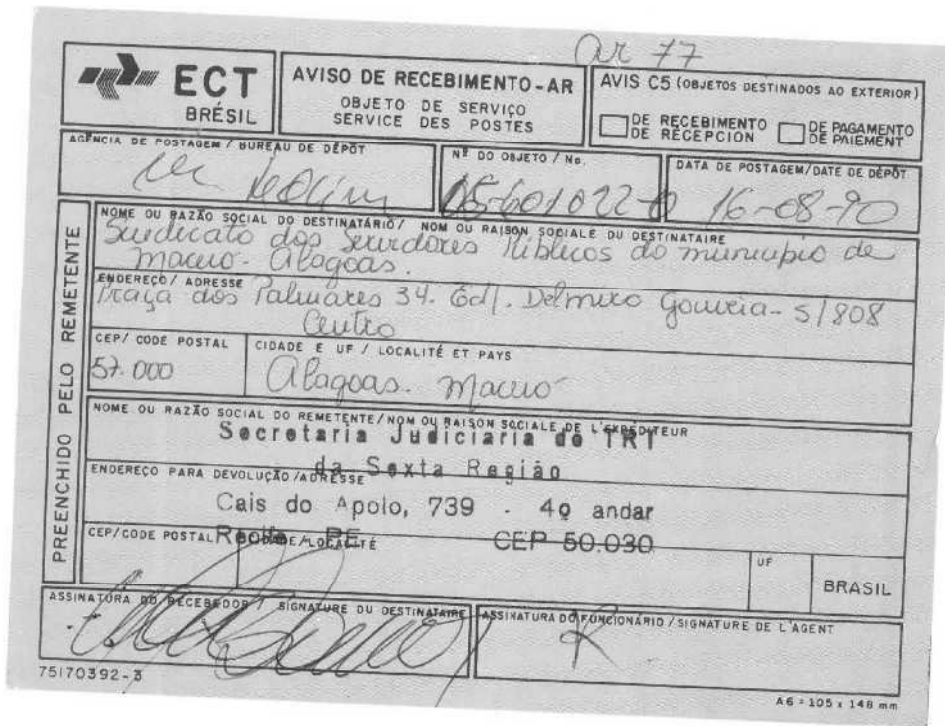 ar 77
ECT
BRÉSIL
AVISO DE RECEBIMENTO-AR
OBJETO DE SERVIÇO
SERVICE DES POSTES
AVIS C5 (OBJETOS DESTINADOS AO EXTERIOR)
DE RECEBIMENTO
DE RÉCEPCION
DE PAGAMENTO
DE PAIEMENT
AGÊNCIA DE POSTAGEM / BUREAU DE DÉPÔT
Nº DO OBJETO / No.
601022-0
DATA DE POSTAGEM/DATE DE DÉPÔT
16-08-90
PREENCHIDO PELO REMETENTE
NOME OU RAZÃO SOCIAL DO DESTINATÁRIO/ NOM OU RAISON SOCIALE DU DESTINATAIRE
Sindicato dos Servidores Públicos do município de
Maceió- Alagoas.
ENDEREÇO/ ADRESSE
Praça dos Palmares 34. Edf. Delmiro Gouveia- S/808
Centro
CEP/ CODE POSTAL
57.000
CIDADE E UF / LOCALITÉ ET PAYS
Alagoas. Maceió
NOME OU RAZÃO SOCIAL DO REMETENTE/NOM OU RAISON SOCIALE DE L'EXPÉDITEUR
Secretaria Judiciaria do TRT
da Sexta Região
ENDEREÇO PARA DEVOLUÇÃO/ADRESSE
Cais do Apolo, 739 - 4º andar
CEP/CODE POSTAL
Recife PE
CEP 50.030
UF
BRASIL
ASSINATURA DO RECEBEDOR / SIGNATURE DU DESTINATAIRE
ASSINATURA DO FUNCIONÁRIO / SIGNATURE DE L'AGENT
75170392-3
A6 = 105 x 148 mm